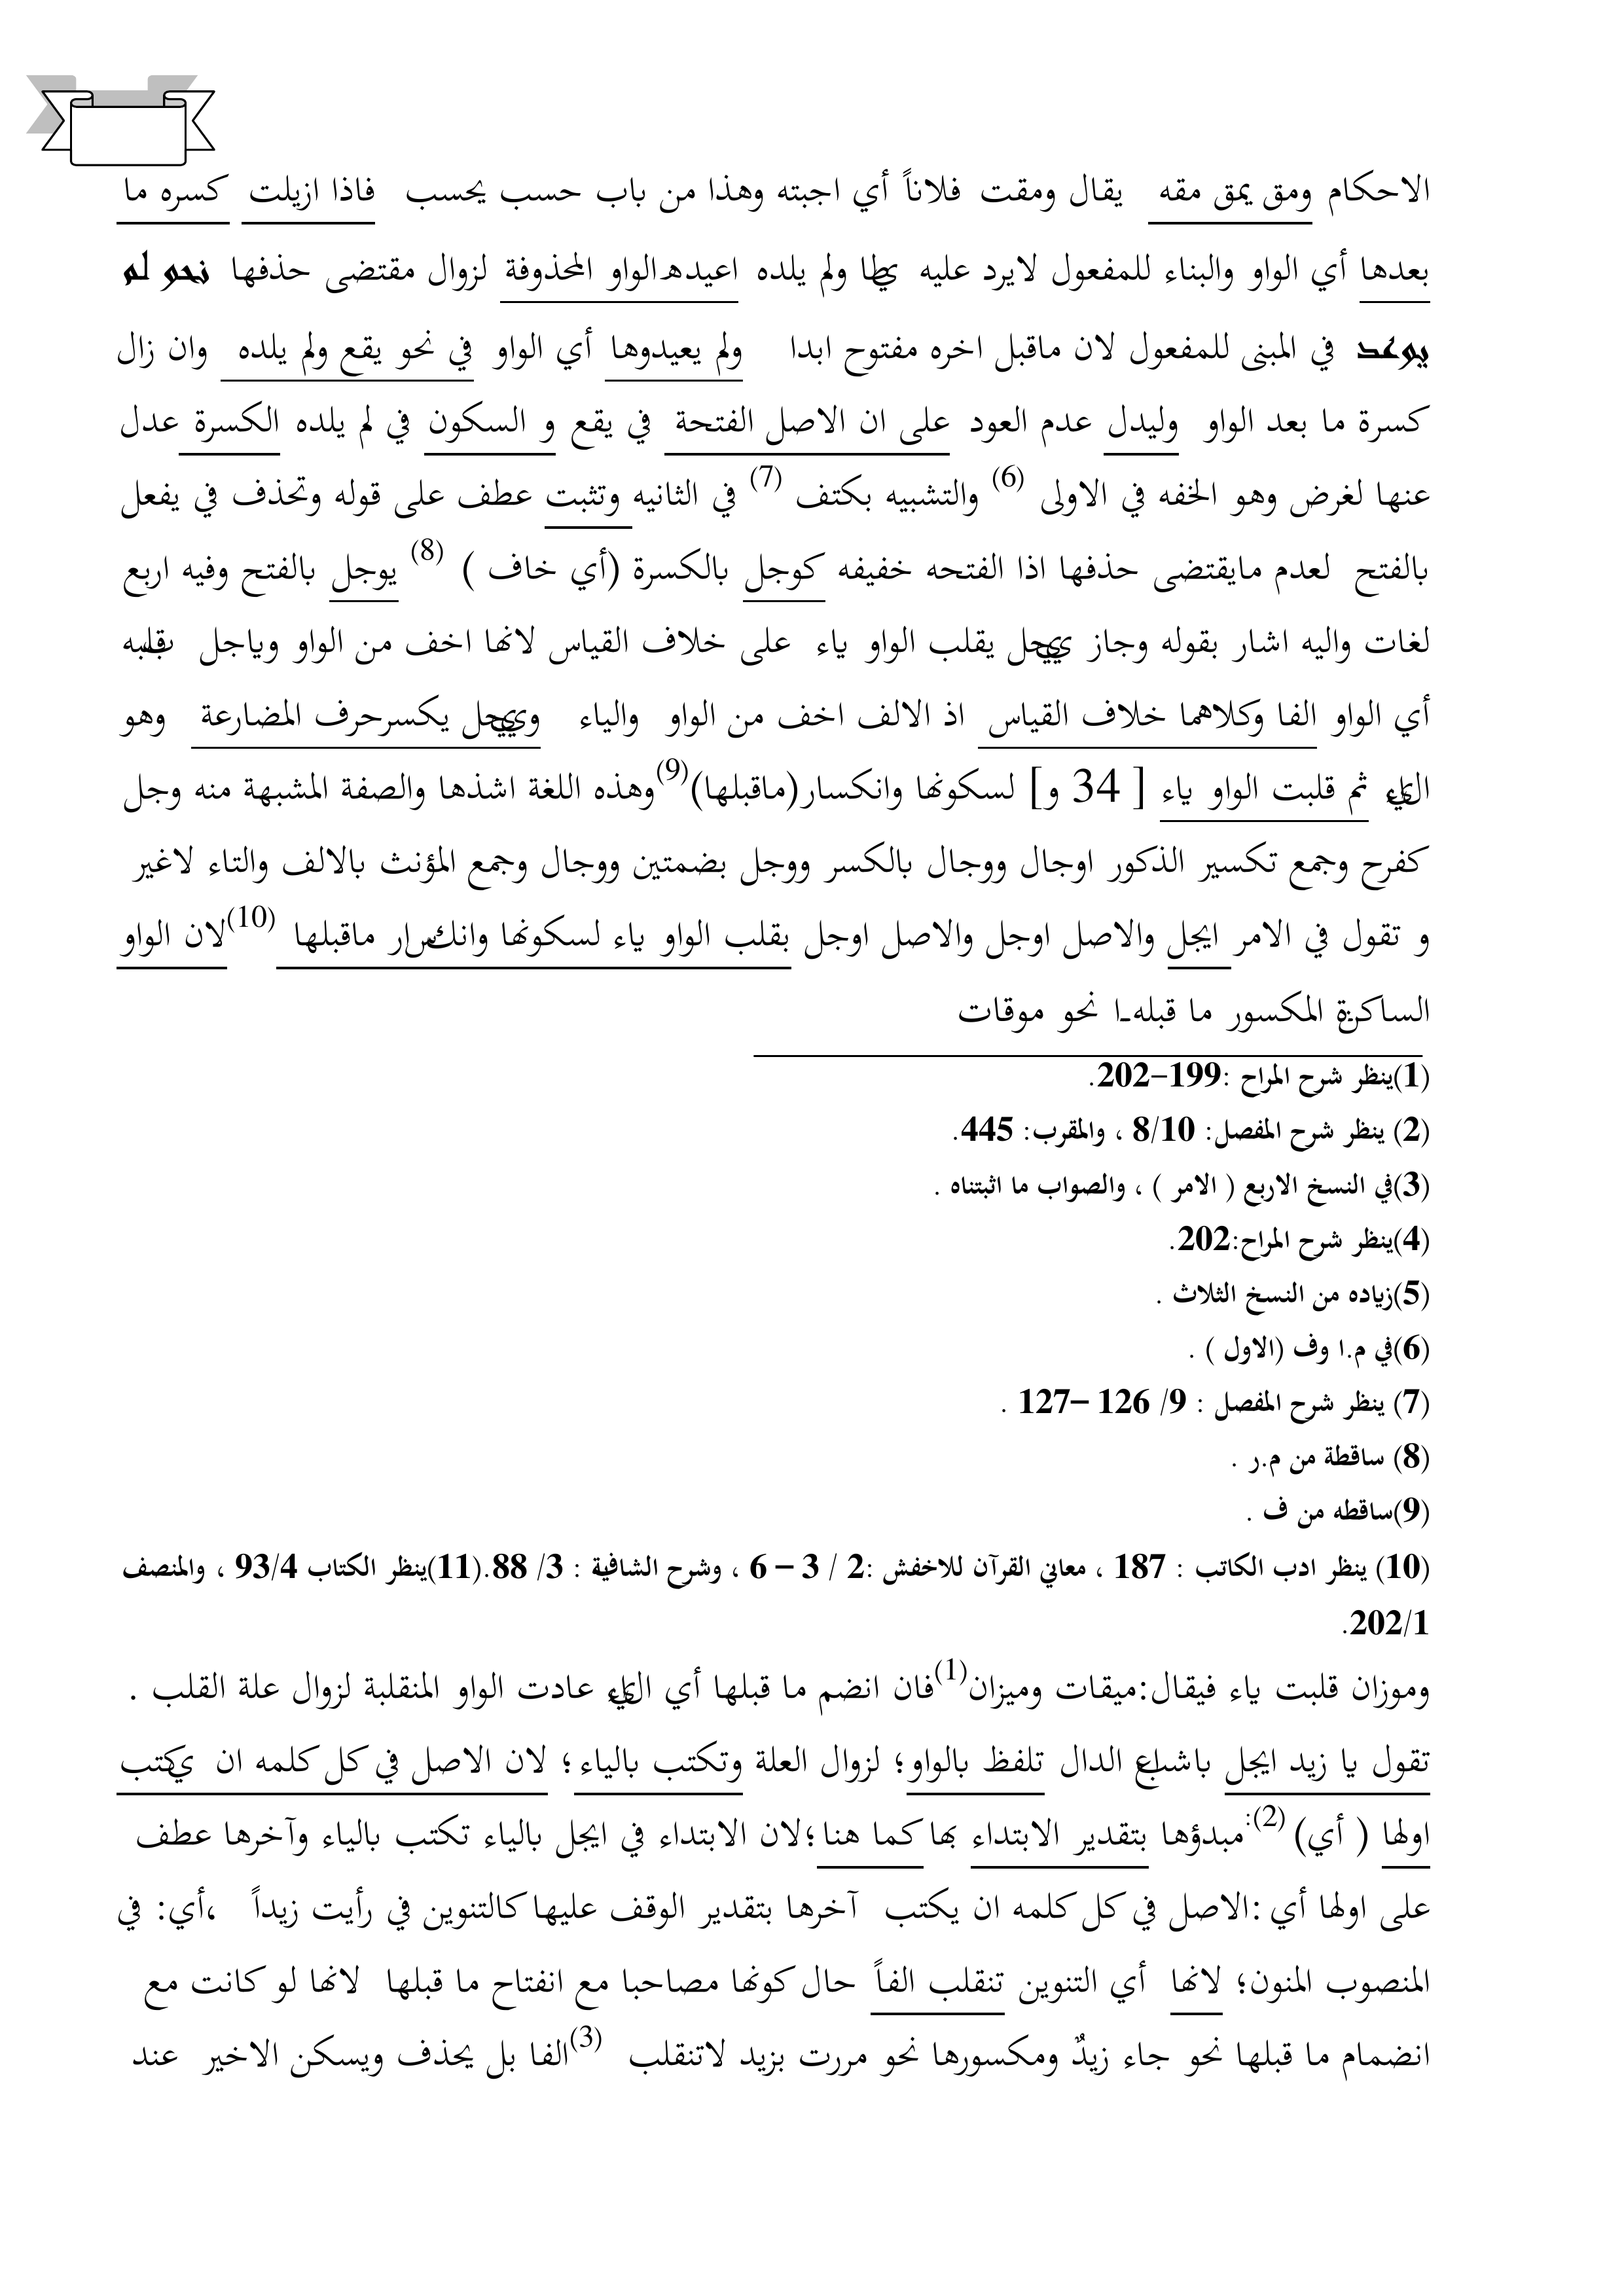 الاحكام ومق يمق مقه يقال ومقت فلاناً أي اجبته وهذا من باب حسب يحسب فاذا ازيلت كسره ما
بعدها أي الواو والبناء للمفعول لايرد عليه يطا ولم يلده اعيدهـالواو المحذوفة لزوال مقتضى حذفها نحو لم
يوعد في المبنى للمفعول لان ماقبل اخره مفتوح ابدا ولم يعيدوها أي الواو في نحو يقع ولم يلده وان زال
كسرة ما بعد الواو وليدل عدم العود على ان الاصل الفتحة في يقع و السكون في لم يلده الكسرة عدل
عنها لغرض وهو الخفه في الاولى (6) والتشبيه بكتف (7) في الثانيه وتثبت عطف على قوله وتحذف في يفعل
بالفتح لعدم مايقتضى حذفها اذا الفتحه خفيفه كوجل بالكسرة (أي خاف ) (8) يوجل بالفتح وفيه اربع
لغات واليه اشار بقوله وجاز ييجل يقلب الواو ياء على خلاف القياس لانها اخف من الواو وياجل بقلبه
أي الواو الفا وكلاهما خلاف القياس اذ الالف اخف من الواو والياء وييجل يكسرحرف المضارعة وهو
الياء ثم قلبت الواو ياء [ 34 و] لسكونها وانكسار(ماقبلها)(9)وهذه اللغة اشذها والصفة المشبهة منه وجل
كفرح وجمع تكسير الذكور اوجال ووجال بالكسر ووجل بضمتين ووجال وجمع المؤنث بالالف والتاء لاغير
و تقول في الامر ايجل والاصل اوجل والاصل اوجل بقلب الواو ياء لسكونها وانكسار ماقبلها (10)لان الواو
الساكنة المكسور ما قبلهـا نحو موقات
(1)ينظر شرح المراح :199–202.
(2) ينظر شرح المفصل: 8/10 ، والمقرب: 445.
(3)في النسخ الاربع ( الامر ) ، والصواب ما اثبتناه .
(4)ينظر شرح المراح:202.
(5)زياده من النسخ الثلاث .
(6)في م.ا وف (الاول ) .
(7) ينظر شرح المفصل : 9/ 126 –127 .
(8) ساقطة من م.ر .
(9)ساقطه من ف .
(10) ينظر ادب الكاتب : 187 ، معاني القرآن للاخفش :2 / 3 – 6 ، وشرح الشافية : 3/ 88.(11)ينظر الكتاب 93/4 ، والمنصف
202/1.
وموزان قلبت ياء فيقال:ميقات وميزان(1)فان انضم ما قبلها أي الياء عادت الواو المنقلبة لزوال علة القلب .
تقول يا زيد ايجل باشباع الدال تلفظ بالواو؛ لزوال العلة وتكتب بالياء؛ لان الاصل في كل كلمه ان يكتب
اولها ( أي) (2):مبدؤها بتقدير الابتداء بها كما هنا؛لان الابتداء في ايجل بالياء تكتب بالياء وآخرها عطف
على اولها أي :الاصل في كل كلمه ان يكتب آخرها بتقدير الوقف عليها كالتنوين في رأيت زيداً ،أي: في
المنصوب المنون؛ لانها أي التنوين تنقلب الفاً حال كونها مصاحبا مع انفتاح ما قبلها لانها لو كانت مع
انضمام ما قبلها نحو جاء زيدٌ ومكسورها نحو مررت بزيد لاتنقلب (3)الفا بل يحذف ويسكن الاخير عند